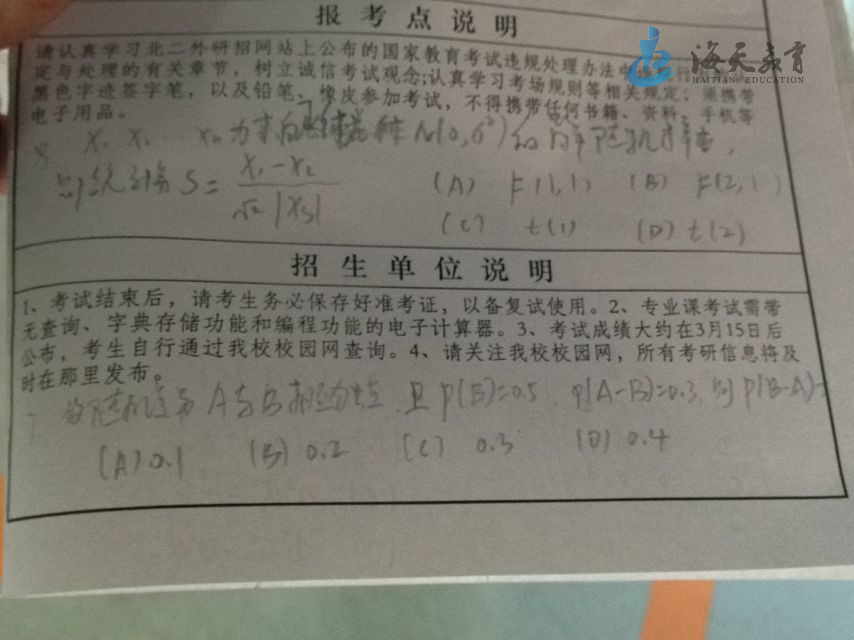 报考点说明
海天教育
HAITIAN EDUCATION
请认真学习北二外研招网站上公布的国家教育考试违规处理办法中
定与处理的有关章节,树立诚信考试观念;认真学习考场规则等相关规定;须携带
黑色字迹签字笔,以及铅笔、橡皮参加考试,不得携带任何书籍、资料、手机等
电子用品。
8. X₁ X₂ ⋯ 为来自总体 N(0,σ²) 的简单随机样本,
则统计量 S= (X₁-X₂)/(√2 |X₃|)
(A) F(1,1) (B) F(2,1)
(C) t(1) (D) t(2)
招生单位说明
1、考试结束后,请考生务必保存好准考证,以备复试使用。2、专业课考试需带
无查询、字典存储功能和编程功能的电子计算器。3、考试成绩大约在3月15日后
公布,考生自行通过我校校园网查询。4、请关注我校校园网,所有考研信息将及
时在那里发布。
7. 设随机事件 A与B相互独立,且 P(B)=0.5, P(A-B)=0.3, 则 P(B-A)=
(A) 0.1 (B) 0.2 (C) 0.3 (D) 0.4